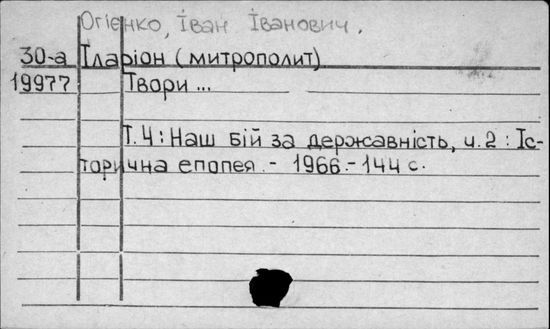 Огієнко, Іван Іванович.
30-а Іларіон (митрополит)
19977 Твори ...
Т.4: Наш бій за державність, ч.2: Іс-
торична епопея. - 1966. - 144 с.